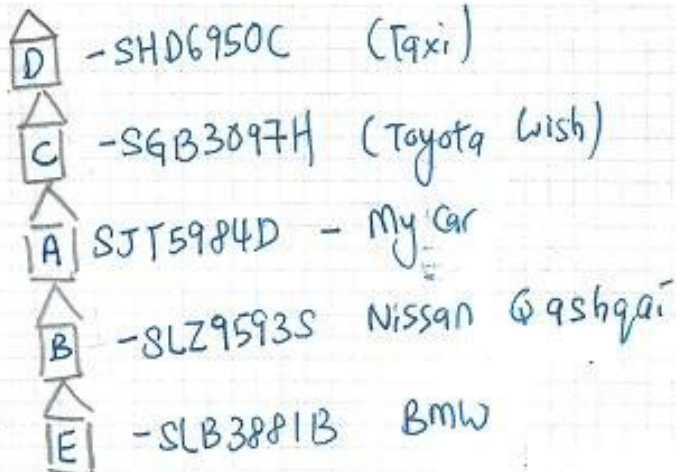 D -SHD6950C (Taxi)
C -SGB3097H (Toyota Wish)
A SJT5984D - My Car
B -SLZ9593S Nissan Qashqai
E -SLB3881B BMW